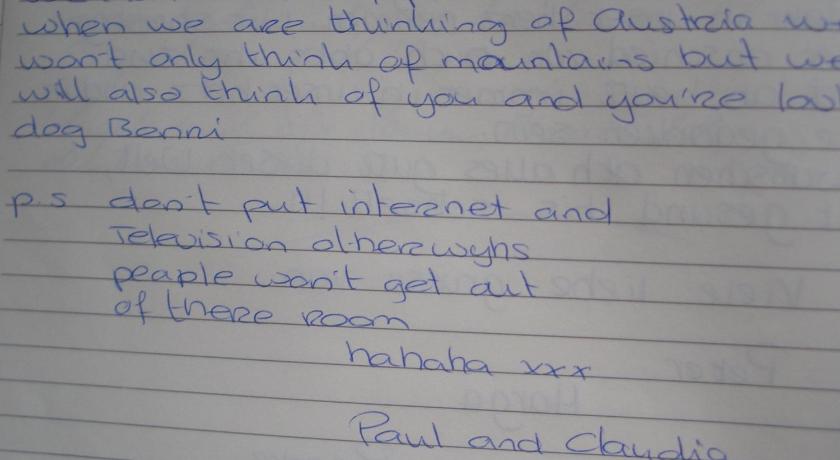 when we are thinking of Austria
won't only think of mountains but we
will also think of you and you're
dog Benni
p.s don't put internet and
Television otherwyhs
people won't get out
of there room
hahaha xxx
Paul and Claudia